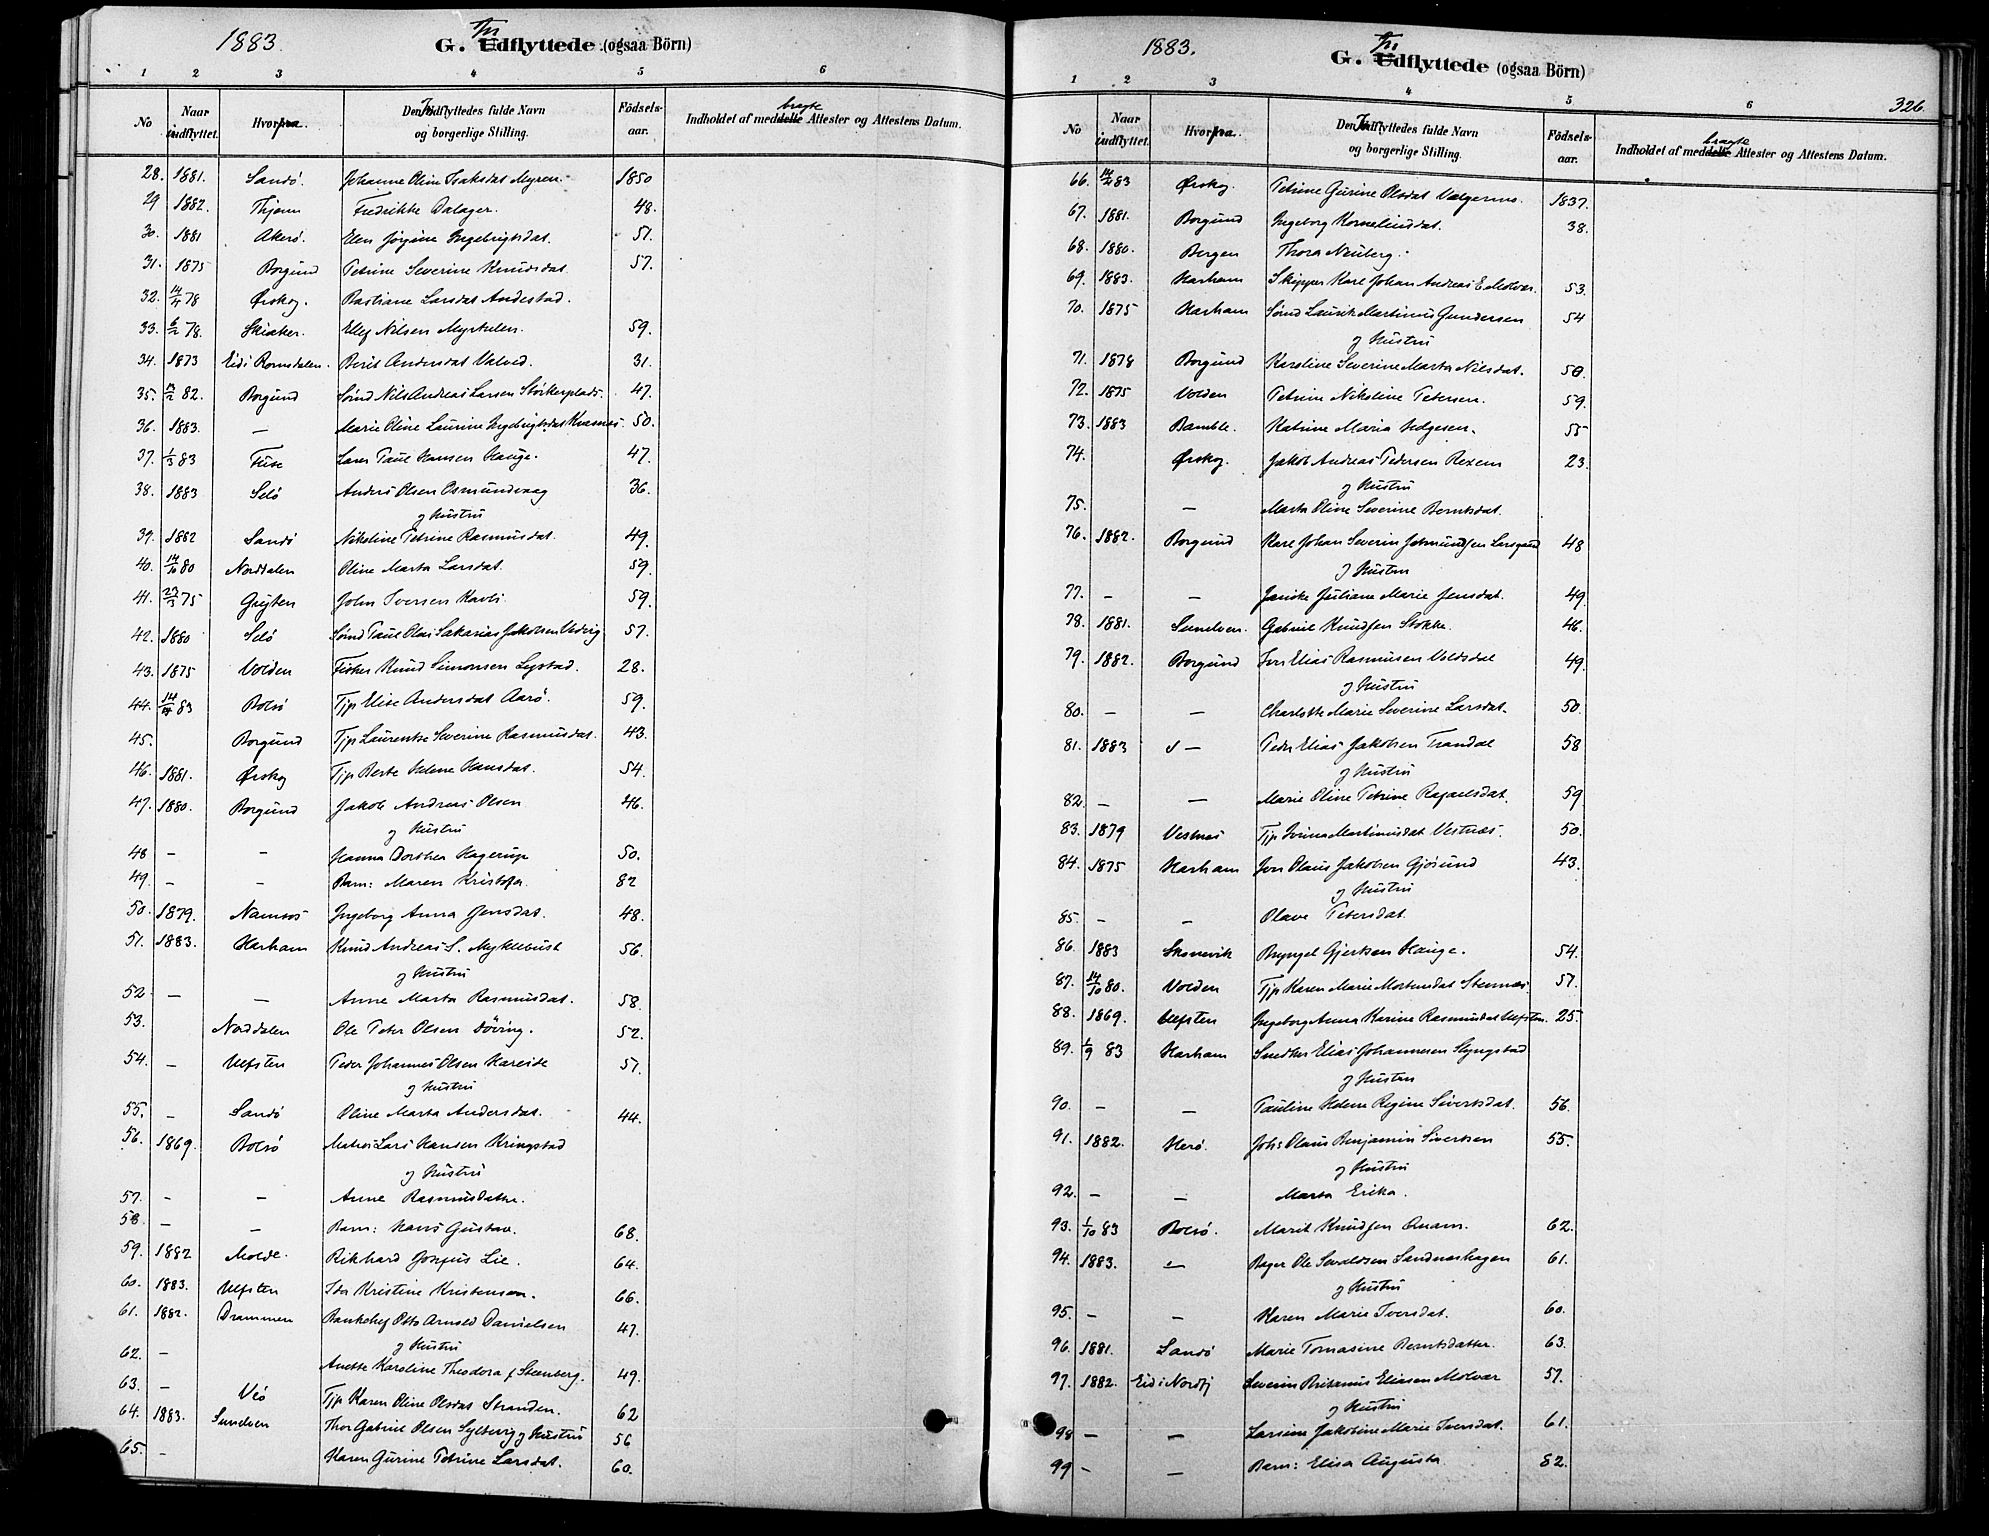 1883.
G. Indflyttede (ogsaa Börn)
1 2 3 4 5 6
No Naar indflyttet. Hvorfra. Den Indflyttedes fulde Navn og borgerlige Stilling. Födsels-aar. Indholdet af medbragte Attester og Attestens Datum.
28. 1881. Sandö. Johanne Oline Isaksdat Myren. 1850
29 1882. Thjøm Fredrikke Dalager. 48.
30. 1881 Akerö. Elen Jörgine Ingebrigtsdat. 51.
31. 1875 Borgund Petrine Severine Knudsdat. 57.
32. 14/4 78 Ørskog. Bastiane Larsdat Andestad.
33. 6/2 78. Skiaker. Ellef Nilsen 59.
34. 1873 Eid i Romsdalen. Berit Andersdat 31.
35. 82. Borgund Nils Andreas Larsen 47.
36. 1883. — Marie Oline Laurine 50.
37. 1/3 83 Fuse Lars Paul Hansen Hauge. 47.
38. 1883 Selö Anders Olsen Osmundsvaag 36.
og Hustru
39. 1882 Sandö Nikoline Petrine Rasmusdat. 49.
40. 14/10 80 Norddalen Oline Marta Larsdat. 59.
41. 27/3 75 Gryten John Iversen Kavli 59.
42. 1880 Selö Paul Olai Sakarias Jakobsen 57.
43. 1875 Volden Fisker Knud Simonsen 28.
44. 83 Bolsö Tjp Elise Andersdat Aarö. 59.
45. Borgund Tjp Laurentse Severine Rasmusdat. 43.
46. 1881. Ørskog Tjp Berte Helene Hansdat. 54.
47. 1880. Borgund Jakob Andreas Olsen 46.
og Hustru
48 — — Hanna Dorthea Hagerup 50.
49. — — Barn: Maren Kristofa. 82
50. 1879. Namsos Ingeborg Anna Jensdat. 48.
51. 1883. Harham Knud Andreas S. Myklebust 56.
og Hustru
52 — — Anne Marta Rasmusdat. 58.
53. Norddalen Ole Peter Olsen Döving. 52.
54. — Ulfsten Peder Johannes Olsen Hareide 51.
og Hustru
55. — Sandö Oline Marta Andersdat. 44.
56. 1869. Bolsö Matros Lars Hansen Kringstad
og Hustru
57. — — Anne Rasmusdatter.
58. — — Barn: Hans Gustav. 68.
59. 1882 Molde. Rikhard Josefus Lie. 64.
60. 1883. Ulfsten Ida Kristine Kristensen. 66.
61. 1882. Drammen Bankchef Otto Arnold Danielsen 47.
og Hustru
62. — Anette Karoline Theodora f. Steenberg. 49.
63. — Veö Tjp Karen Oline Olsdat Stranden. 62
64. 1883. Sunelven Thor Gabriel Olsen og Hustru 56
65. — Karen Gurine Petrine Larsdat. 60.
1883.
G. Indflyttede (ogsaa Börn)
326.
1 2 3 4 5 6
No Naar indflyttet. Hvorfra. Den Indflyttedes fulde Navn og borgerlige Stilling. Födsels-aar. Indholdet af medbragte Attester og Attestens Datum.
66. 83 Ørskog. Petrine Gurine Olsdat 1837.
67. 1881. Borgund Ingeborg Korneliusdat. 38.
68. 1880. Bergen Thora Neuberg.
69. 1883. Harham Skipper Karl Johan Andreas E. Molvær. 53.
70. 1875 Harham Laurits Martinus Gundersen 54
og Hustru
71. 1878 Borgund Karoline Severine Marta Nilsdat. 50.
72. 1875 Volden Petrine Nikoline Petersen. 59.
73. 1883 Bamble. Katrine Maria Helgesen. 55
74. Ørskog. Jakob Andreas Pedersen Rexem 23.
og Hustru
75. — Marta Oline Severine Berntsdat.
76. 1882. Borgund Karl Johan Severin 48
og Hustru
77. — — Juliane Marie Jensdat. 49.
78. 1881. Sunelven. Gabriel Knudsen Stokke. 46.
79. 1882. Borgund Iver Elias Rasmussen Voldsdal 49.
og Hustru
80. — — Charlotte Marie Severine Larsdat. 50.
81. 1883 — Peder Elias Jakobsen Trandal 58
og Hustru
82. — — Marie Oline Petrine Rafaelsdat. 59
83. 1879 Vestnes Tjp Ivrina Martinusdat Vestnæs. 50.
84. 1875 Harham Iver Olaus Jakobsen Gjösund 43.
og Hustru
85. — — Olave Petersdat.
86. 1883 Skonevik Brynjel Gjertsen Hauge. 54.
87. 14/10 80. Volden Tjp Karen Marie Mortensdat Steinnæs 57.
88. 1869. Ulfsten Ingeborg Anna Karine Rasmusdat Ulfsten. 25.
89. 1/9 83 Harham Snedker Elias Johannesen Slyngstad
og Hustru
90. — — Pauline Helene Regine Sivertsdat. 56.
91. 1882. Herö. Johs Olaus Benjamin Sivertsen 55.
og Hustru
92. — — Marta Erika.
93. 1/10 83 Bolsö. Marit Knudsen Aram. 62.
94. 1883. — Bager Ole Sandneshagen 61.
og Hustru
95. — — Karen Marie Iversdat. 60.
96. 1881. Sandö Marie Tomasine Berntsdatter. 63.
97. 1882. Eid i Nordfj Severin Britanus Eliasen Molvær 57.
og Hustru
98 — — Larsine Jakobine Marie Iversdat. 61.
99 — — Barn: Elisa Augusta 82.